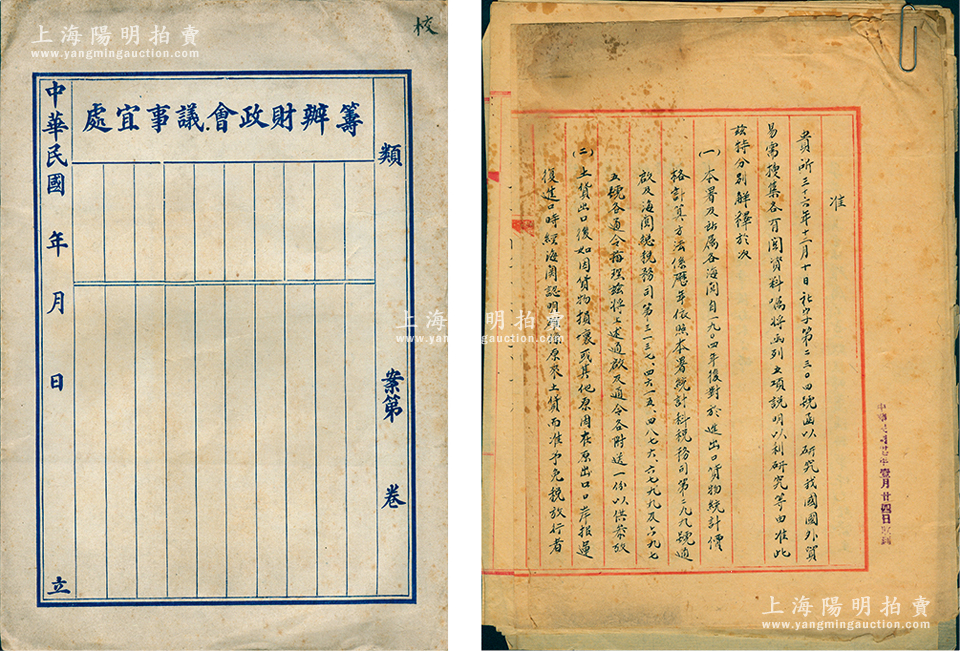 上海陽明拍賣
www.yangmingauction.com
校
籌辦財政會議事宜處
類
案第
卷
中華民國
年
月
日
立
上海陽明拍賣
www.yangmingauction.com
准
貴所三十六年十二月十日社字第二三〇四號函以研究我國國外貿
易需搜集各有關資料囑將函列五項說明以利研究等由准此
茲特分別解釋於次
(一)本署及所屬各海關自一九〇四年後對於進出口貨物統計價
格計算方法係歷年依照本署統計科稅務司第二九九號通
啟及海關總稅務司第三一三七、四六一五、四八七六、六七九九及六九七
五號各通令辦理茲將上述通啟及通令各附送一份以供參考
(二)土貨出口後如因貨物損壞或其他原因在原出口口岸報運
復進口時經海關認明確原來土貨而准予免稅放行者
月廿四日收到
上海陽明拍賣
www.yangmingauction.com